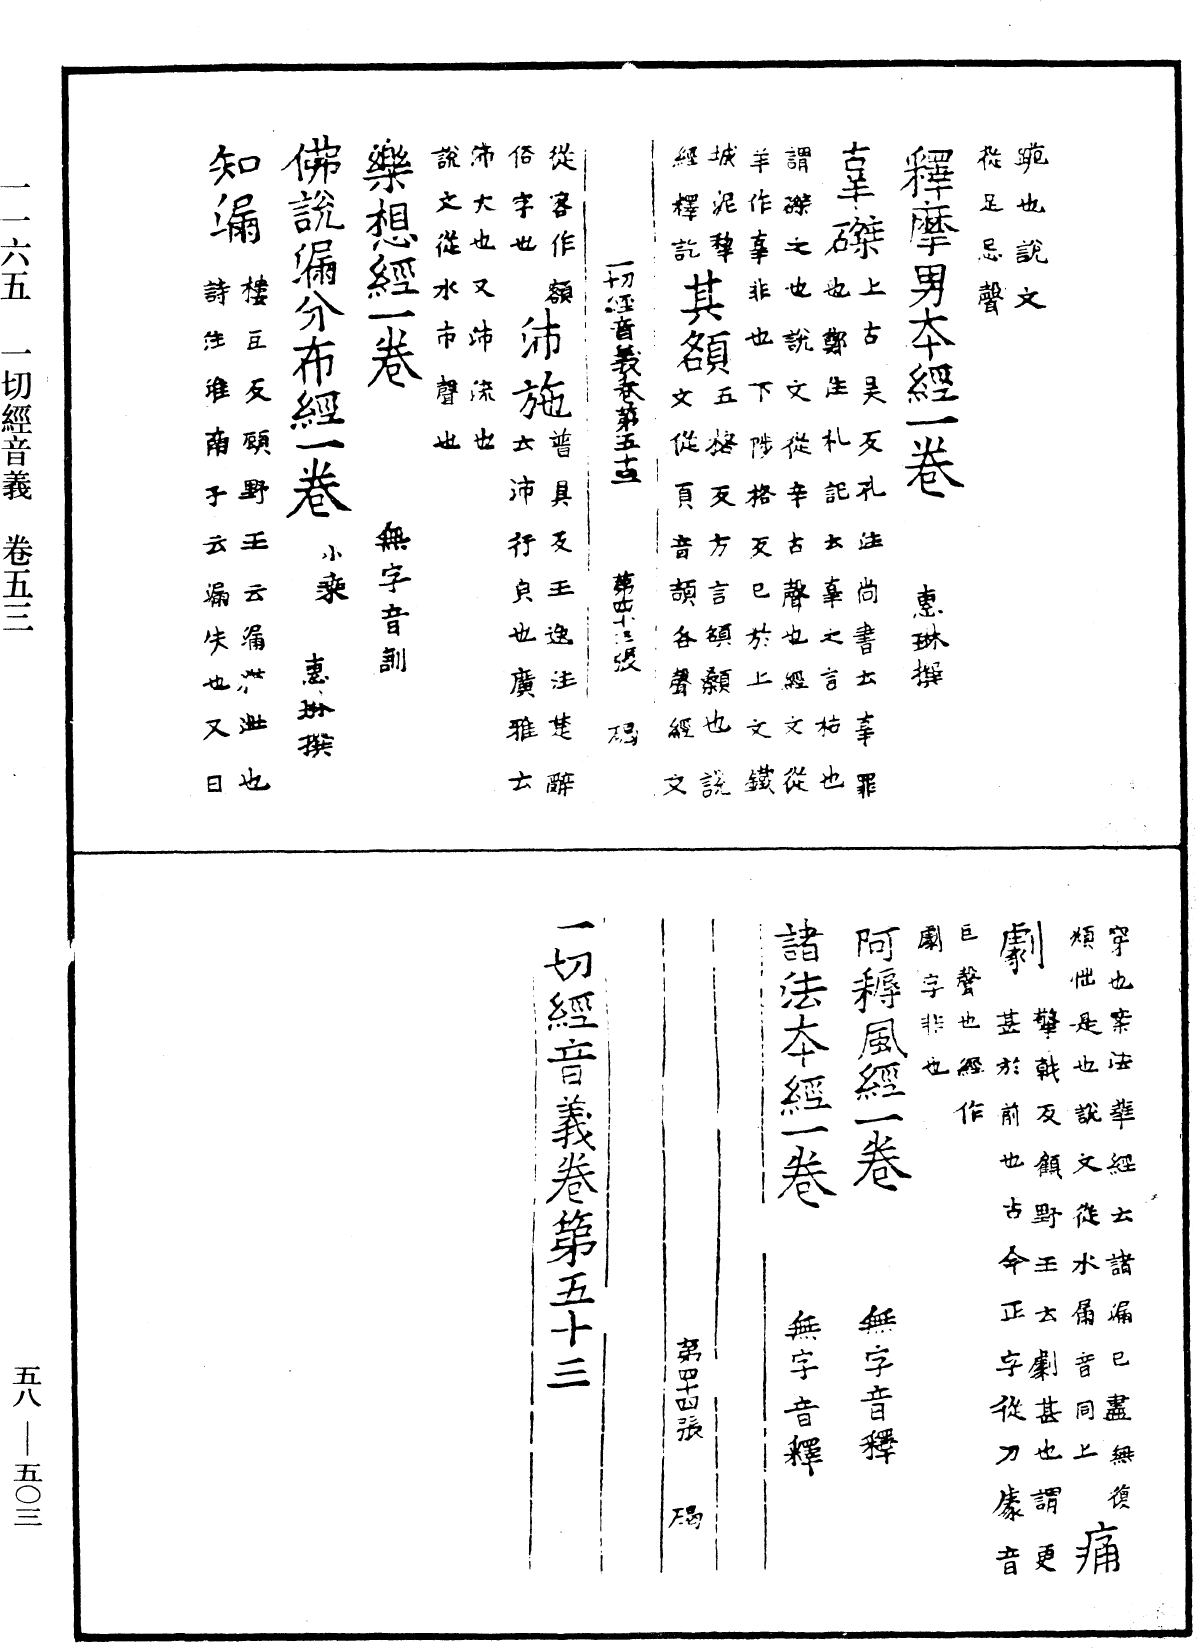 䠊也說文
從足忌聲
釋摩男本經一卷　惠琳撰
辜磔上古吴反孔注尚書云辜罪
也鄭注礼記云辜之言枯也
謂磔之也說文從辛古聲也經文從
羊作辜非也下陟格反已於上文鐵
城泥犂
經釋訖
其額五格反方言額顙也說
文從頁音頡各聲經文
一切經音義卷第五十三　第四十三張　碣
從客作額
俗字也
沛施普具反王逸注楚辭
云沛行皃也廣雅云
沛大也又沛流也
說文從水巿聲也
樂想經一卷　無字音訓
佛說漏分布經一卷　小乘　惠琳撰
知漏樓豆反顧野王云漏泄也
詩注淮南子云漏失也又曰
穿也案法華經云諸漏已盡無復
煩惱是也說文從水屚音同上
痛
劇擎戟反顧野王云劇甚也謂更
甚於前也古今正字從刀豦音
巨聲也經作
劇字非也
阿耨風經一卷　無字音釋
諸法本經一卷　無字音釋
第四十四張　碣
一切經音義卷第五十三
一一六五　一切經音義　卷五三
五八—五〇三